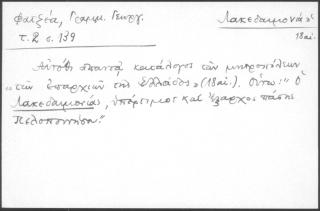 Φατζέα, Γραμμ. Γεωργ.
τ. 2 σ. 139
Λακεδαιμονία
18 αἰ.
Αὐτόθι κατάλογος τῶν μητροπόλεων
„τῶν ἐπαρχιῶν τῆς Ἑλλάδος" (18 αἰ.). Οὕτω: " Ὁ
Λακεδαιμονίας, ὑπέρτιμος καὶ ἔξαρχος πάσης
Πελοποννήσου."